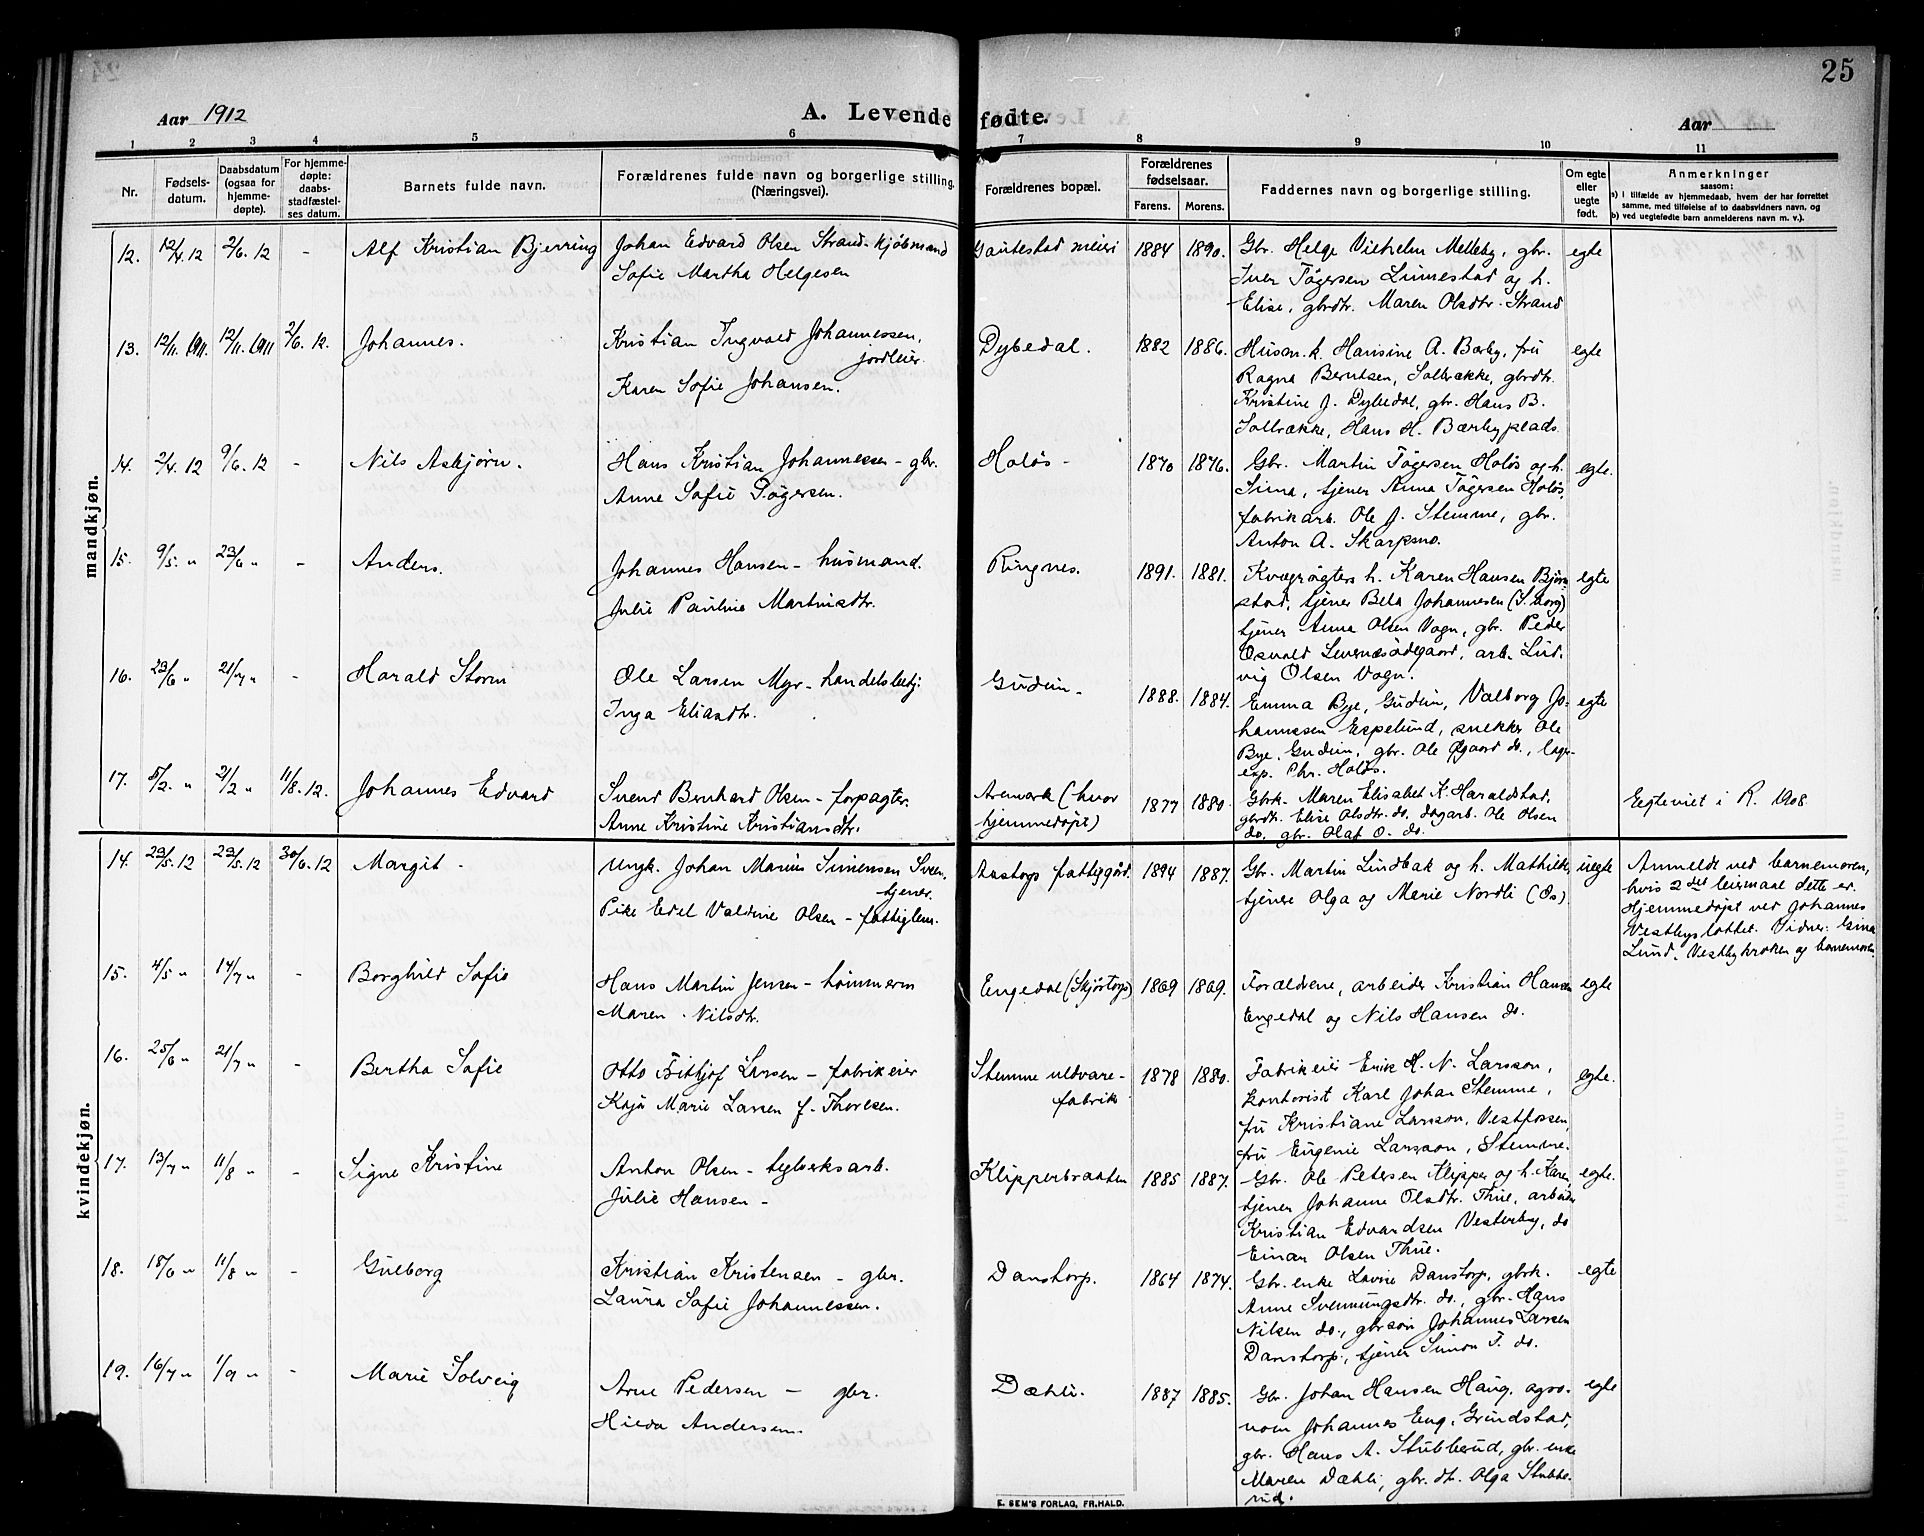 25
Aar 1912
A. Levende fødte.
Aar
1 2 3 4 5 6 7 8 9 10 11
Nr.
Fødsels-
datum.
Daabsdatum
(ogsaa for
hjemme-
døpte).
For hjemme-
døpte:
daabs-
stadfæstel-
ses datum.
Barnets fulde navn.
Forældrenes fulde navn og borgerlige stilling.
(Næringsvei).
Forældrenes bopæl.
Forældrenes
fødselsaar.
Farens. Morens.
Faddernes navn og borgerlige stilling.
Om egte
eller
uegte
født.
Anmerkninger
saasom:
a) i tilfælde av hjemmedaab, hvem der har forrettet
samme, med tilføielse af to daabsvidners navn, og
b) ved uegtefødte barn anmelderens navn m. v.).
mandkjøn.
12. 12/4. 12 2/6. 12 - Alf Kristian Bjerring
Johan Edvard Olsen Strand - kjøbmand
Sofie Martha Helgesen
Gautestad meieri 1884 1890.
Gbr. Helge Vilhelm Melleby, gbr.
Iver Tøgersen Linnestad og h.
Elise, gbrdtr. Maren Olsdtr. Strand
egte
13. 12/11. 1911. 12/11. 1911 2/6. 12. Johannes.
Kristian Ingvald Johannessen,
jordleier.
Karen Sofie Johansen.
Dybedal. 1882 1886.
Husm. k. Hansine A. Bærby, fru
Ragna Berntsen, Solbrække, gbrdtr.
Kristine J. Dybedal, gbr. Hans B.
Solbrække, Hans H. Bærbyplads.
egte
14. 2/4. 12 9/6. 12 - Nils Asbjørn.
Hans Kristian Johannessen - gbr.
Anne Sofie Tøgersen.
Holøs - 1870 1876.
Gbr. Martin Tøgersen Holøs og h.
Sina, tjener Anna Tøgersen Holøs,
fabrikarb. Ole J. Stemme, gbr.
Anton A. Skarpsno.
egte.
15. 9/5. " 23/6 " - Anders.
Johannes Hansen - husmand.
Julie Pauline Martinsdtr.
Ringnes. 1891. 1881.
Kvægrøgters h. Karen Hansen Bjørn
stad, tjener Beta Johannesen (S. borg)
tjener Anna Olsen Vogn, gbr. Peder
Osvald Levernæsødegaard, arb. Lud-
vig Olsen Vogn.
egte
16. 23/6 " 21/7 " - Harald Storm
Ole Larsen Myr - handelsbetj.
Inga Eliasdtr.
Gudim - 1888. 1884.
Emma Bye, Gudim, Valborg Jo-
hannesen Espelund, snekker Ole
Bye, Gudim, gbr. Ole Øgaard do., lager-
exp. Chr. Holøs.
egte
17. 5/2. " 2/2 " 11/8. 12. Johannes Edvard
Svend Bernhard Olsen - forpagter.
Anne Kristine Kristiansdtr.
Aremark (hvor
hjemmedøpt) 1877 1880
Gbrk. Maren Elisabet K. Haraldstad,
gbrdtr. Elise Olsdtr. do. dagarb. Ole Olsen
do. gbr. Olaf O. do.
Egteviet i R. 1908.
kvindekjøn.
14. 23/5. 12 23/5. 12 30/6. 12 Margit -
Ungk. Johan Marius Simensen Sven,
tjener.
Pike Edel Valdine Olsen - fattiglem.
Aastorp fattiggård. 1894 1887.
Gbr. Martin Lindbak og h. Mathilde,
tjener Olga og Marie Nordli (Os)
uegte
Anmeldt ved barnemoren,
hvis 2det leiermaal dette er.
Hjemmedøpt ved Johannes
Vestbyslottet. Vidner: Gina
Lund, Vestbykroken og barnemoren.
15. 4/5 " 14/7 " - Borghild Sofie
Hans Martin Jensen - tømmerm
Maren Nilsdtr.
Engedal (Skjørtorp) 1869 1869.
Forældrene, arbeider Kristian Hansen
Engedal og Nils Hansen do.
egte
16. 25/6 " 21/7 " - Bertha Sofie
Otto Fritjof Larsen - fabrikeier
Kaja Marie Larsen f. Thoresen.
Stemme uldvare-
fabrik 1878 1880.
Fabrikeier Erik H. N. Larsson,
kontorist Karl Johan Stemme,
fru Kristiane Larsson, Vestfossen,
fru Eugenie Larsson, Stemme.
egte.
17. 13/7 " 11/8 " - Signe Kristine
Anton Olsen - teglverksarb.
Julie Hansen -
Klipperbraaten 1885 1887.
Gbr. Ole Petersen Klipper og h. Karen,
tjener Johanne Olsdtr. Thue, arbeider
Kristian Edvardsen Vesterby, do
Einar Olsen Thue.
egte.
18. 18/6 " 11/8 " - Gulborg
Kristian Kristensen - gbr.
Laura Sofie Johannessen.
Danstorp. 1864 1874.
Gbr. enke Lovise Danstorp, gbrk.
Anne Svenningsdtr. do., gbr. Hans
Nilsen do., gbrsøn Johannes Larsen
Danstorp, tjener Simon T. do.
egte
19. 16/7 " 1/9 " - Marie Solveig
Arne Pedersen - gbr.
Hilda Andersen.
Dæhli. 1887 1885.
Gbr. Johan Hansen Haug, agro-
nom Johannes Eng, Grindstad,
gbr. Hans A. Stubberud, gbr. enke
Maren Dæhli, gbr. dtr. Olga Stubbe-
rud.
egte
E. SEM'S FORLAG, FR.HALD.